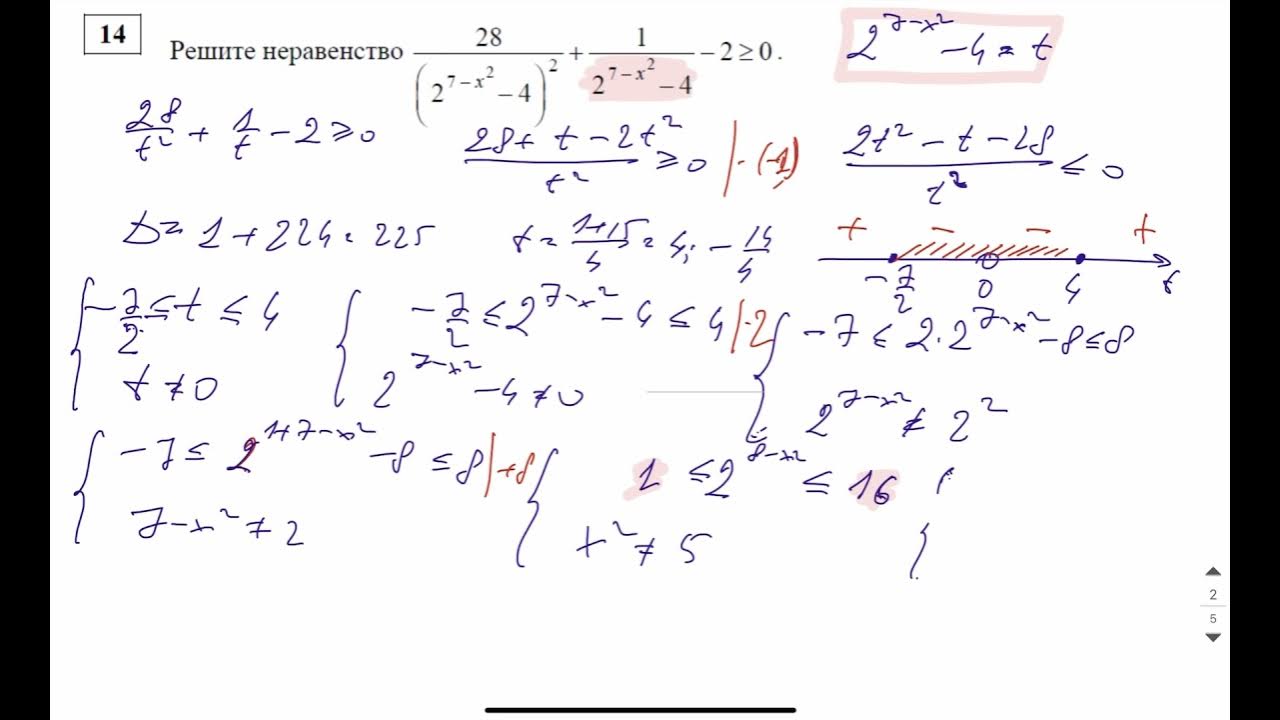 14 Решите неравенство 28/(2^(7−x²)−4)² + 1/(2^(7−x²)−4) − 2 ≥ 0. 2^(7−x²) − 4 = t
28/t² + 1/t − 2 ≥ 0 (28 + t − 2t²)/t² ≥ 0 |·(−1) (2t² − t − 28)/t² ≤ 0
D = 1 + 224 = 225 t = (1+15)/4 = 4; −14/4 + − − +
−7/2 0 4 t
{ −7/2 ≤ t ≤ 4 { −7/2 ≤ 2^(7−x²) − 4 ≤ 4 |·2 { −7 ≤ 2·2^(7−x²) − 8 ≤ 8
t ≠ 0 2^(7−x²) − 4 ≠ 0 2^(7−x²) ≠ 2²
{ −7 ≤ 2^(1+7−x²) − 8 ≤ 8 |+8 { 1 ≤ 2^(8−x²) ≤ 16 {
7 − x² ≠ 2 x² ≠ 5
2
5